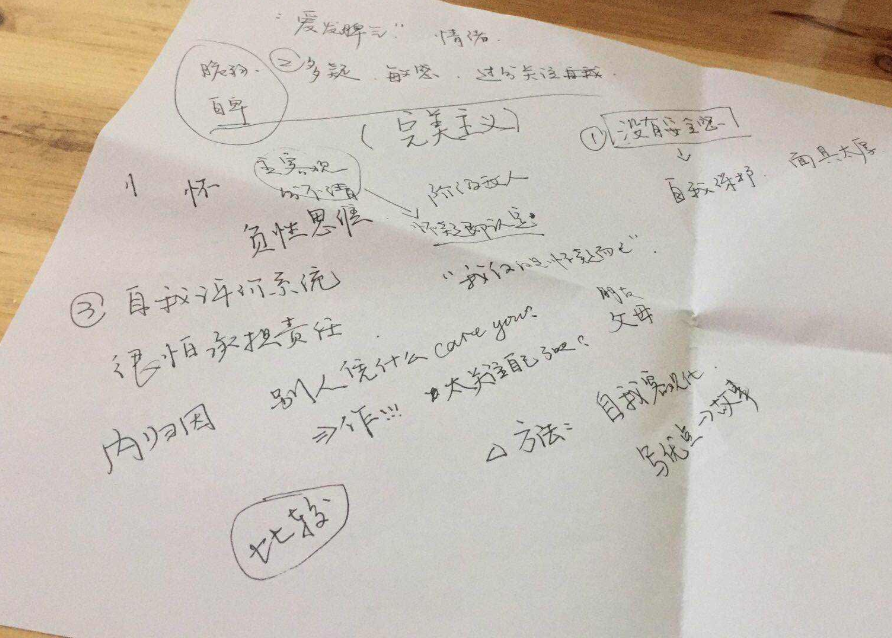 "爱发脾气" 情绪.
脆弱. ②多疑. 敏感. 过分关注自我.
自卑
(完美主义)
①没有安全感
↓
自我保护. 面具太厚
怀
主客观
分不清
假想敌人
负性思维
怀疑即认定
③ 自我评价系统
"我仅仅是怀疑而已".
很怕承担责任.
朋友
父母
别人凭什么care you?
内归因
⇒作!!! 太关注自己了吧?
△方法: 自我客观化.
写优点→故事
比较